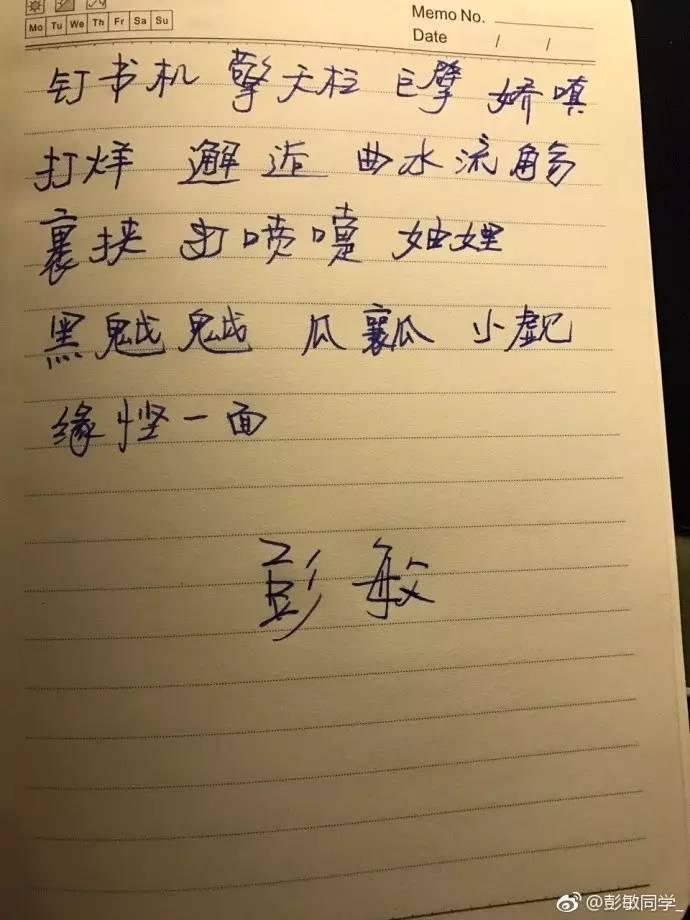 Memo No.
Mo Tu We Th Fr Sa Su
Date / /
钉书机 擎天柱 巨擘 娇嗔
打烊 邂逅 曲水流觞
裹挟 打喷嚏 妯娌
黑魆魆 瓜瓤 小觑
缘悭一面
彭敏
@彭敏同学_